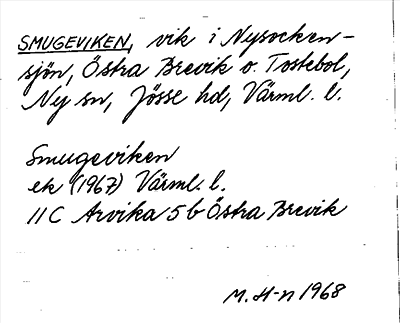 SMUGEVIKEN, vik i Nysocken-
sjön, Östra Brevik o. Tostebol,
Ny sn, Jösse hd, Värml. l.
Smugeviken
ek (1967) Värml. l.
11C Arvika 5b Östra Brevik
M. H-n 1968